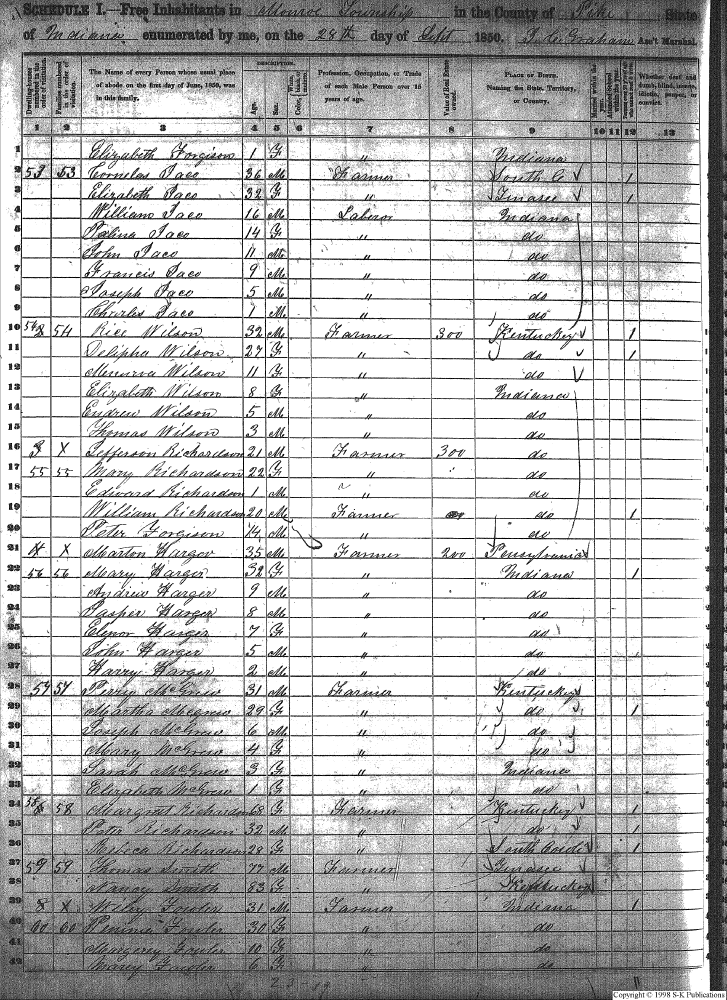 SCHEDULE I.—Free Inhabitants in Monroe Township in the County of Pike State
of Indiana enumerated by me, on the 28th day of Sept 1850. Graham Ass't Marshal.
Dwelling-houses numbered in the order of visitation.
Families numbered in the order of visitation.
The Name of every Person whose usual place of abode on the first day of June, 1850, was in this family.
DESCRIPTION.
Age.
Sex.
Color, White, black, or mulatto.
Profession, Occupation, or Trade of each Male Person over 15 years of age.
Value of Real Estate owned.
PLACE OF BIRTH. Naming the State, Territory, or Country.
Whether deaf and dumb, blind, insane, idiotic, pauper, or convict.
1 2 3 4 5 6 7 8 9 10 11 12 13
1 Elizabeth Forgison 1 F " Indiana
2 53 53 Cornelas Paco 36 M Farmer South C 1
3 Elizabeth Paco 32 F " Tinasee 1
4 William Paco 16 M Laboror Indiana
5 Palina Paco 14 F " do
6 John Paco 11 M " do
7 Francis Paco 9 M " do
8 Joseph Paco 5 M " do
9 Charles Paco 1 M " do
10 54 54 Rice Wilson 32 M Farmer 300 Kentuckey 1
11 Delipha Wilson 27 F " do 1
12 Menurva Wilson 11 F " do
13 Elizabeth Wilson 8 F " Indiana
14 Endrew Wilson 5 M " do
15 Thomas Wilson 3 M " do
16 X Jefferson Richardson 21 M Farmer 300 do
17 55 55 Mary Richardson 22 F " do
18 Edward Richardson 1 M " do
19 William Richardson 20 M Farmer do 1
20 Peter Forgison 14 M " do
21 X Marton Harger 35 M Farmer 200 Pensylvania
22 56 56 Mary Harger 32 F " Indiana 1
23 Andrew Harger 9 M " do
24 Jasper Harger 8 M " do
25 Elenor Harger 7 F " do
26 John Harger 5 M " do
27 Harry Harger 2 M " do
28 57 57 Perry McGrew 31 M Farmer Kentuckey
29 Martha Mcgrew 29 F " do 1
30 Joseph McGrew 6 M " do
31 Mary McGrew 4 F " do
32 Sarah McGrew 3 F " Indiana
33 Elizabeth McGrew 1 F " do
34 58 58 Margret Richardson 68 F Farmer Kentuckey 1
35 Peter Richardson 32 M " do 1
36 Richardson 28 F " South 1
37 59 59 Thomas Smith 77 M Farmer Tinasee
38 Nancy Smith 83 F " Kentuckey
39 X Wiley Fowler 31 M Farmer Indiana 1
40 60 60 Fowler 30 F " do
41 Margerey Fowler 10 F " do
42 Marey Fowler 6 F " do
Copyright © 1998 S-K Publications